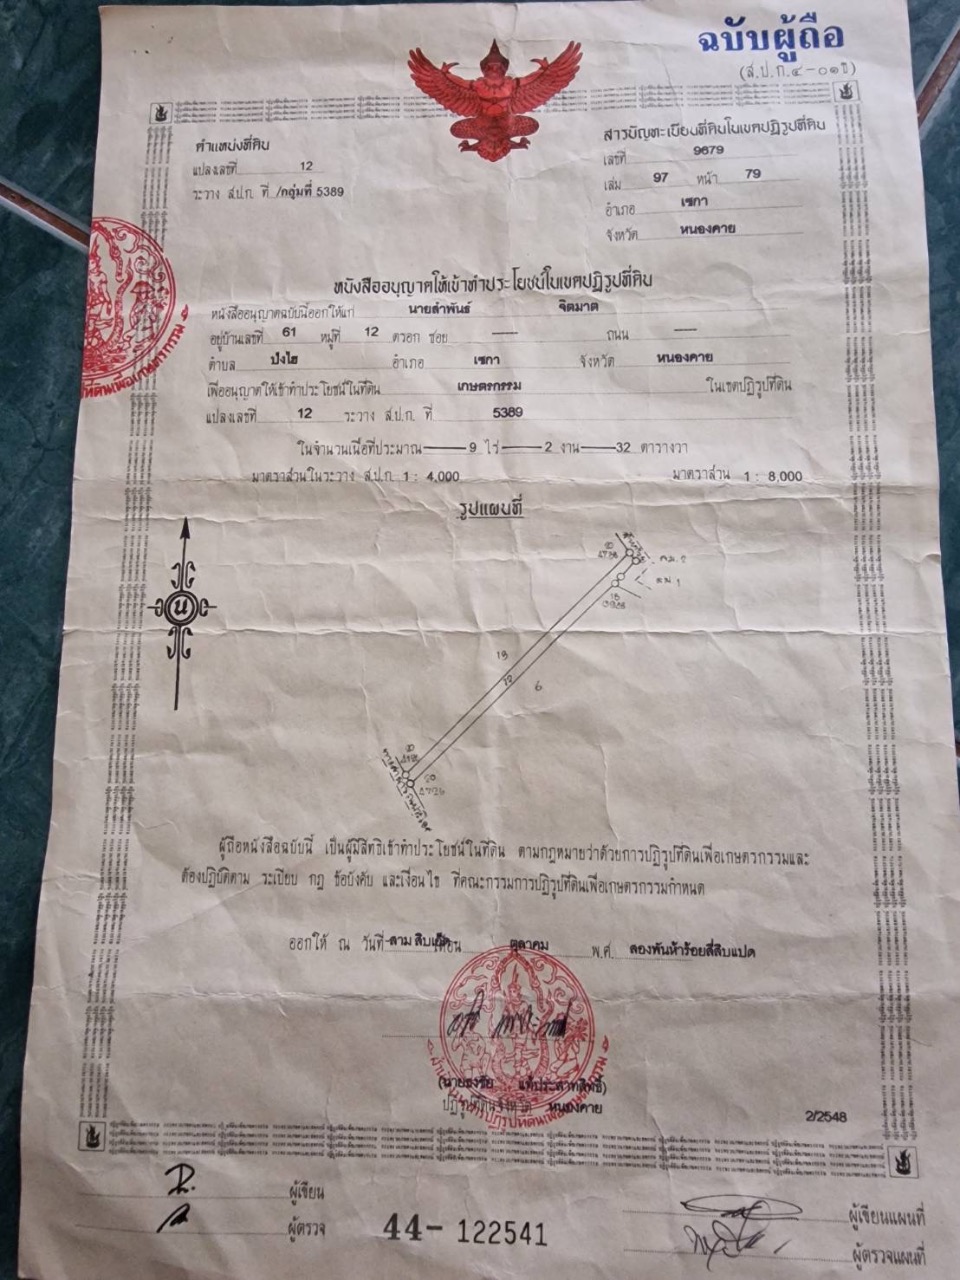 ฉบับผู้ถือ
(ส.ป.ก.๔-๐๑ ข)
ตำแหน่งที่ดิน
แปลงเลขที่ 12
ระวาง ส.ป.ก. ที่ /กลุ่มที่ 5389
สารบัญทะเบียนที่ดินในเขตปฏิรูปที่ดิน
เลขที่ 9679
เล่ม 97 หน้า 79
อำเภอ เซกา
จังหวัด หนองคาย
หนังสืออนุญาตให้เข้าทำประโยชน์ในเขตปฏิรูปที่ดิน
หนังสืออนุญาตฉบับนี้ออกให้แก่ นายลำพันธ์ จิตมาต
อยู่บ้านเลขที่ 61 หมู่ที่ 12 ตรอก ซอย — ถนน —
ตำบล ป่งไฮ อำเภอ เซกา จังหวัด หนองคาย
เพื่ออนุญาตให้เข้าทำประโยชน์ในที่ดิน เกษตรกรรม ในเขตปฏิรูปที่ดิน
แปลงเลขที่ 12 ระวาง ส.ป.ก. ที่ 5389
ในจำนวนเนื้อที่ประมาณ 9 ไร่ 2 งาน 32 ตารางวา
มาตราส่วนในระวาง ส.ป.ก. 1 : 4,000 มาตราส่วน 1 : 8,000
รูปแผนที่
น
19
12
6
ผู้ถือหนังสือฉบับนี้ เป็นผู้มีสิทธิเข้าทำประโยชน์ในที่ดิน ตามกฎหมายว่าด้วยการปฏิรูปที่ดินเพื่อเกษตรกรรมและ
ต้องปฏิบัติตาม ระเบียบ กฎ ข้อบังคับ และเงื่อนไข ที่คณะกรรมการปฏิรูปที่ดินเพื่อเกษตรกรรมกำหนด
ออกให้ ณ วันที่ สามสิบเอ็ด เดือน ตุลาคม พ.ศ. สองพันห้าร้อยสี่สิบแปด
(นายธงชัย แท้ประสาทสิทธิ์)
ปฏิรูปที่ดินจังหวัด หนองคาย
2/2548
ผู้เขียน
ผู้ตรวจ
44- 122541
ผู้เขียนแผนที่
ผู้ตรวจแผนที่